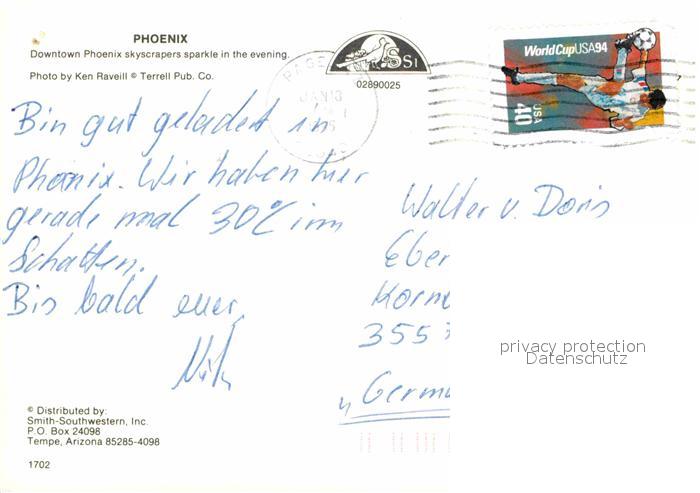 PHOENIX
Downtown Phoenix skyscrapers sparkle in the evening.
Photo by Ken Raveill © Terrell Pub. Co.
SI
02890025
PAGE
JAN 18
World Cup USA 94
40
USA
Bin gut gelandet in
Phoenix. Wir haben hier
gerade mal 30°C im
Schatten.
Bis bald euer
Walter u. Doris
Eber
Korn
355
Germ
privacy protection
Datenschutz
© Distributed by:
Smith-Southwestern, Inc.
P.O. Box 24098
Tempe, Arizona 85285-4098
1702